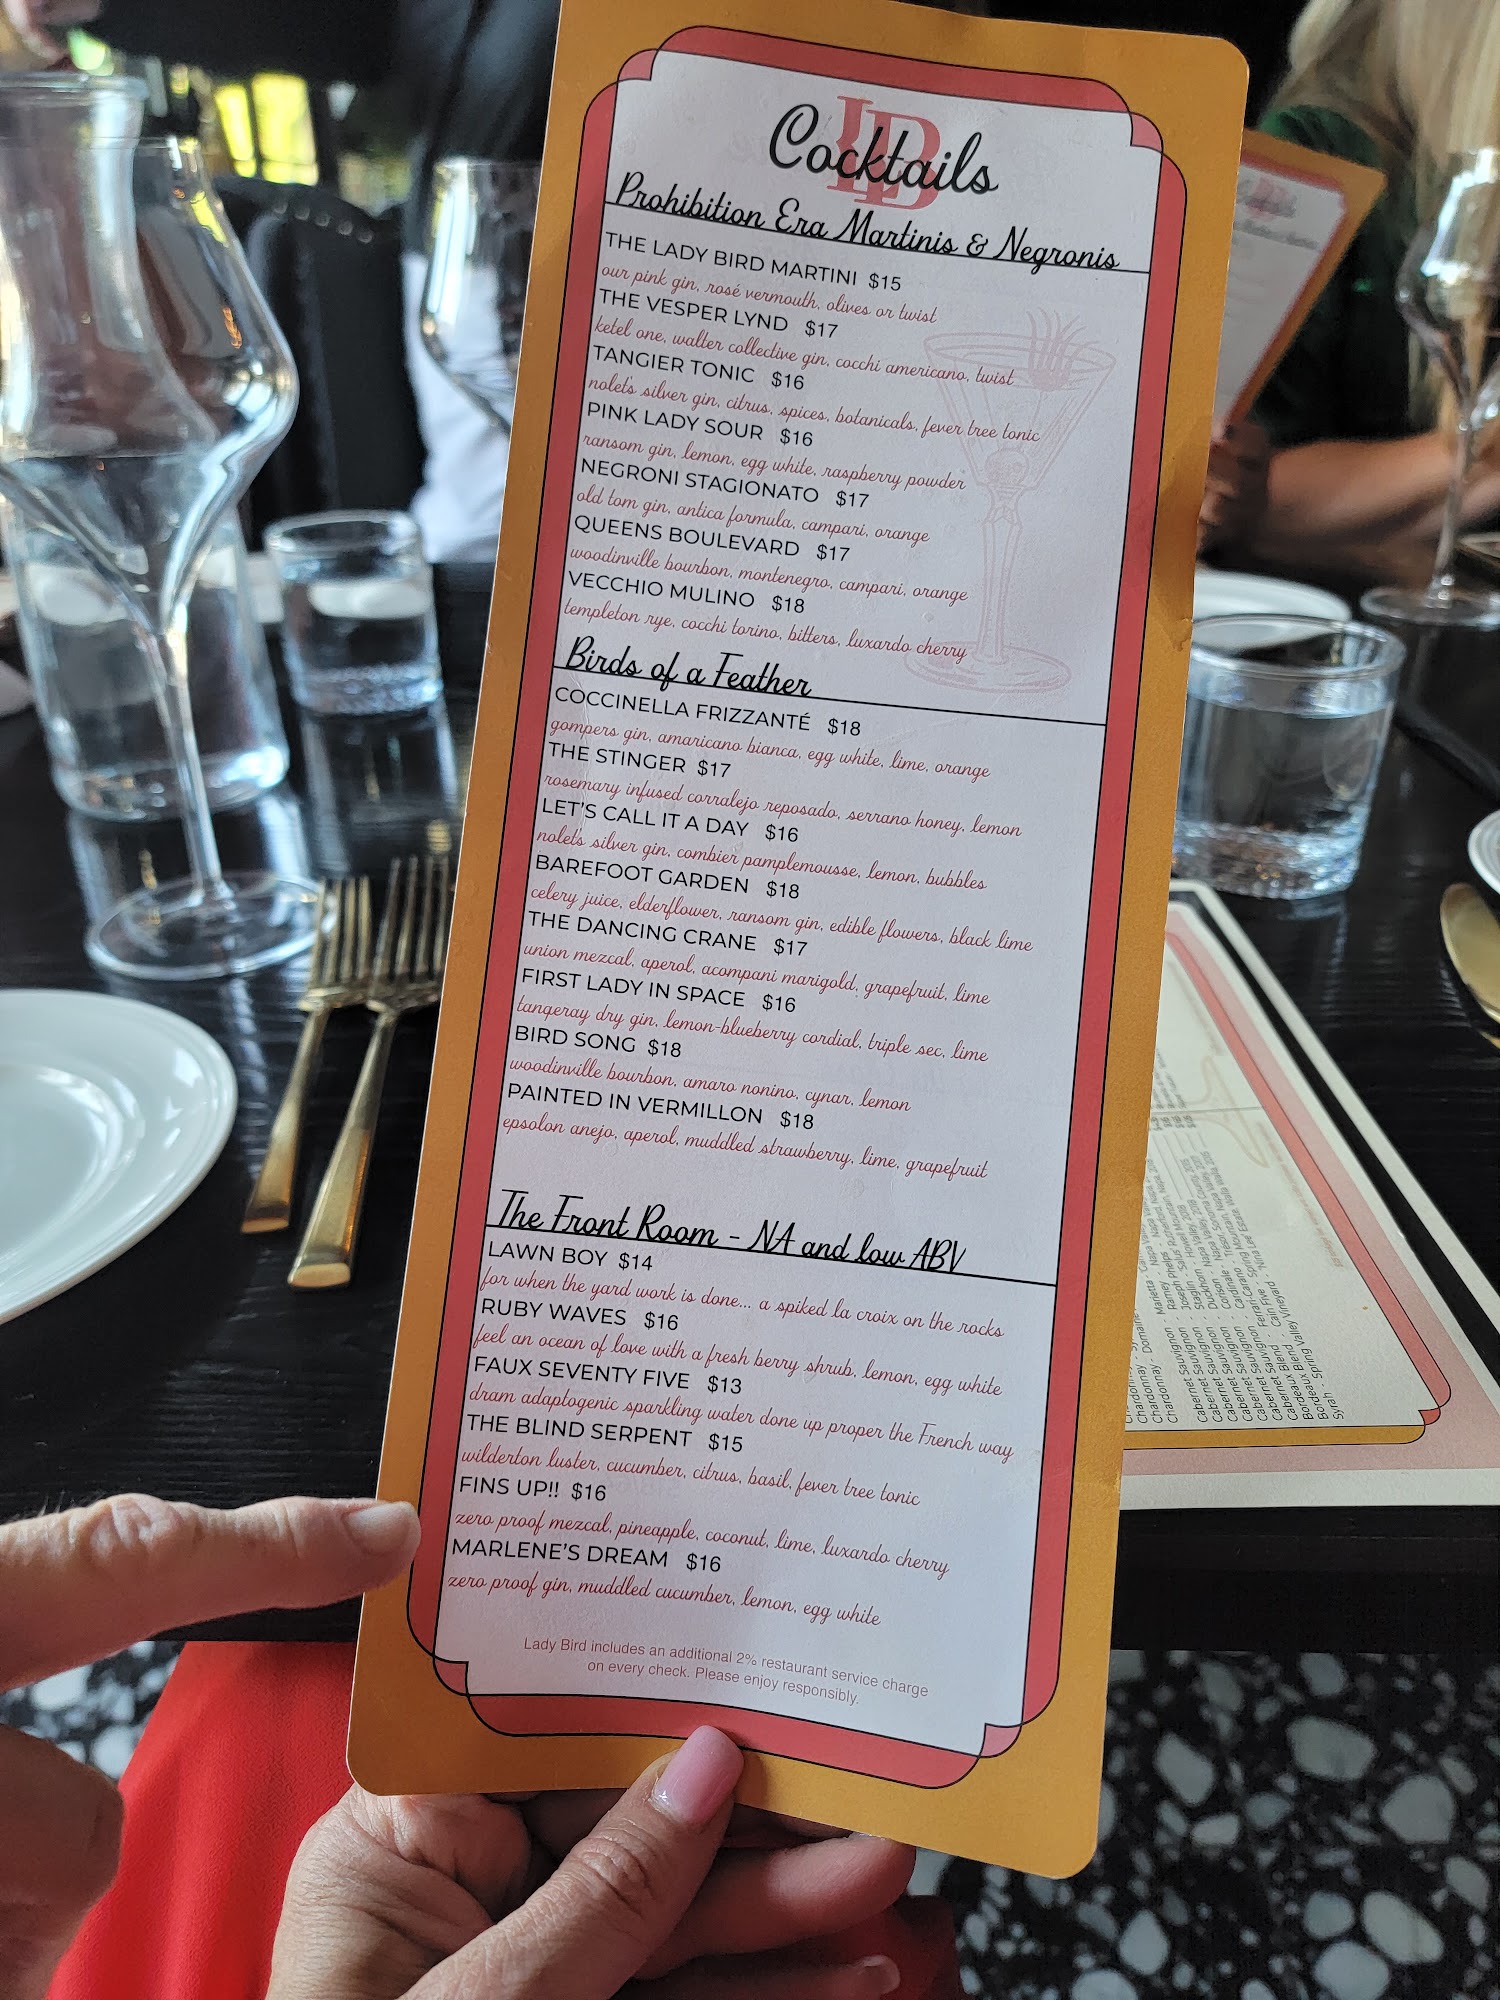 LB
Cocktails
Prohibition Era Martinis & Negronis
THE LADY BIRD MARTINI $15
our pink gin, rosé vermouth, olives or twist
THE VESPER LYND $17
ketel one, walter collective gin, cocchi americano, twist
TANGIER TONIC $16
nolet's silver gin, citrus, spices, botanicals, fever tree tonic
PINK LADY SOUR $16
ransom gin, lemon, egg white, raspberry powder
NEGRONI STAGIONATO $17
old tom gin, antica formula, campari, orange
QUEENS BOULEVARD $17
woodinville bourbon, montenegro, campari, orange
VECCHIO MULINO $18
templeton rye, cocchi torino, bitters, luxardo cherry
Birds of a Feather
COCCINELLA FRIZZANTÉ $18
gompers gin, amaricano bianca, egg white, lime, orange
THE STINGER $17
rosemary infused corralejo reposado, serrano honey, lemon
LET'S CALL IT A DAY $16
nolet's silver gin, combier pamplemousse, lemon, bubbles
BAREFOOT GARDEN $18
celery juice, elderflower, ransom gin, edible flowers, black lime
THE DANCING CRANE $17
union mezcal, aperol, acompani marigold, grapefruit, lime
FIRST LADY IN SPACE $16
tanqeray dry gin, lemon-blueberry cordial, triple sec, lime
BIRD SONG $18
woodinville bourbon, amaro nonino, cynar, lemon
PAINTED IN VERMILLON $18
epsolon anejo, aperol, muddled strawberry, lime, grapefruit
The Front Room - NA and low ABV
LAWN BOY $14
for when the yard work is done... a spiked la croix on the rocks
RUBY WAVES $16
feel an ocean of love with a fresh berry shrub, lemon, egg white
FAUX SEVENTY FIVE $13
dram adaptogenic sparkling water done up proper the French way
THE BLIND SERPENT $15
wilderton luster, cucumber, citrus, basil, fever tree tonic
FINS UP!! $16
zero proof mezcal, pineapple, coconut, lime, luxardo cherry
MARLENE'S DREAM $16
zero proof gin, muddled cucumber, lemon, egg white
Lady Bird includes an additional 2% restaurant service charge
on every check. Please enjoy responsibly.
Chardonnay
Chardonnay - Domaine
Chardonnay
Cabernet Sauvignon
Cabernet Sauvignon
Cabernet Sauvignon
Cabernet Sauvignon
Cabernet Sauvignon
Cabernet Sauvignon
Cabernet Blend - Cain Five
Bordeaux Blend
Bordeaux - Spring Valley
Syrah